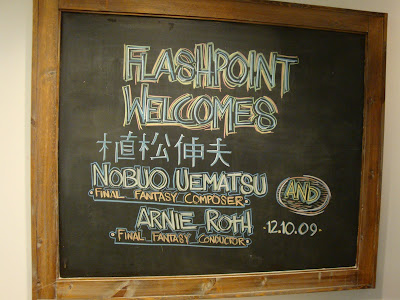 FLASHPOINT
WELCOMES
植松伸夫
NOBUO UEMATSU AND
FINAL FANTASY COMPOSER
ARNIE ROTH -12.10.09-
FINAL FANTASY CONDUCTOR